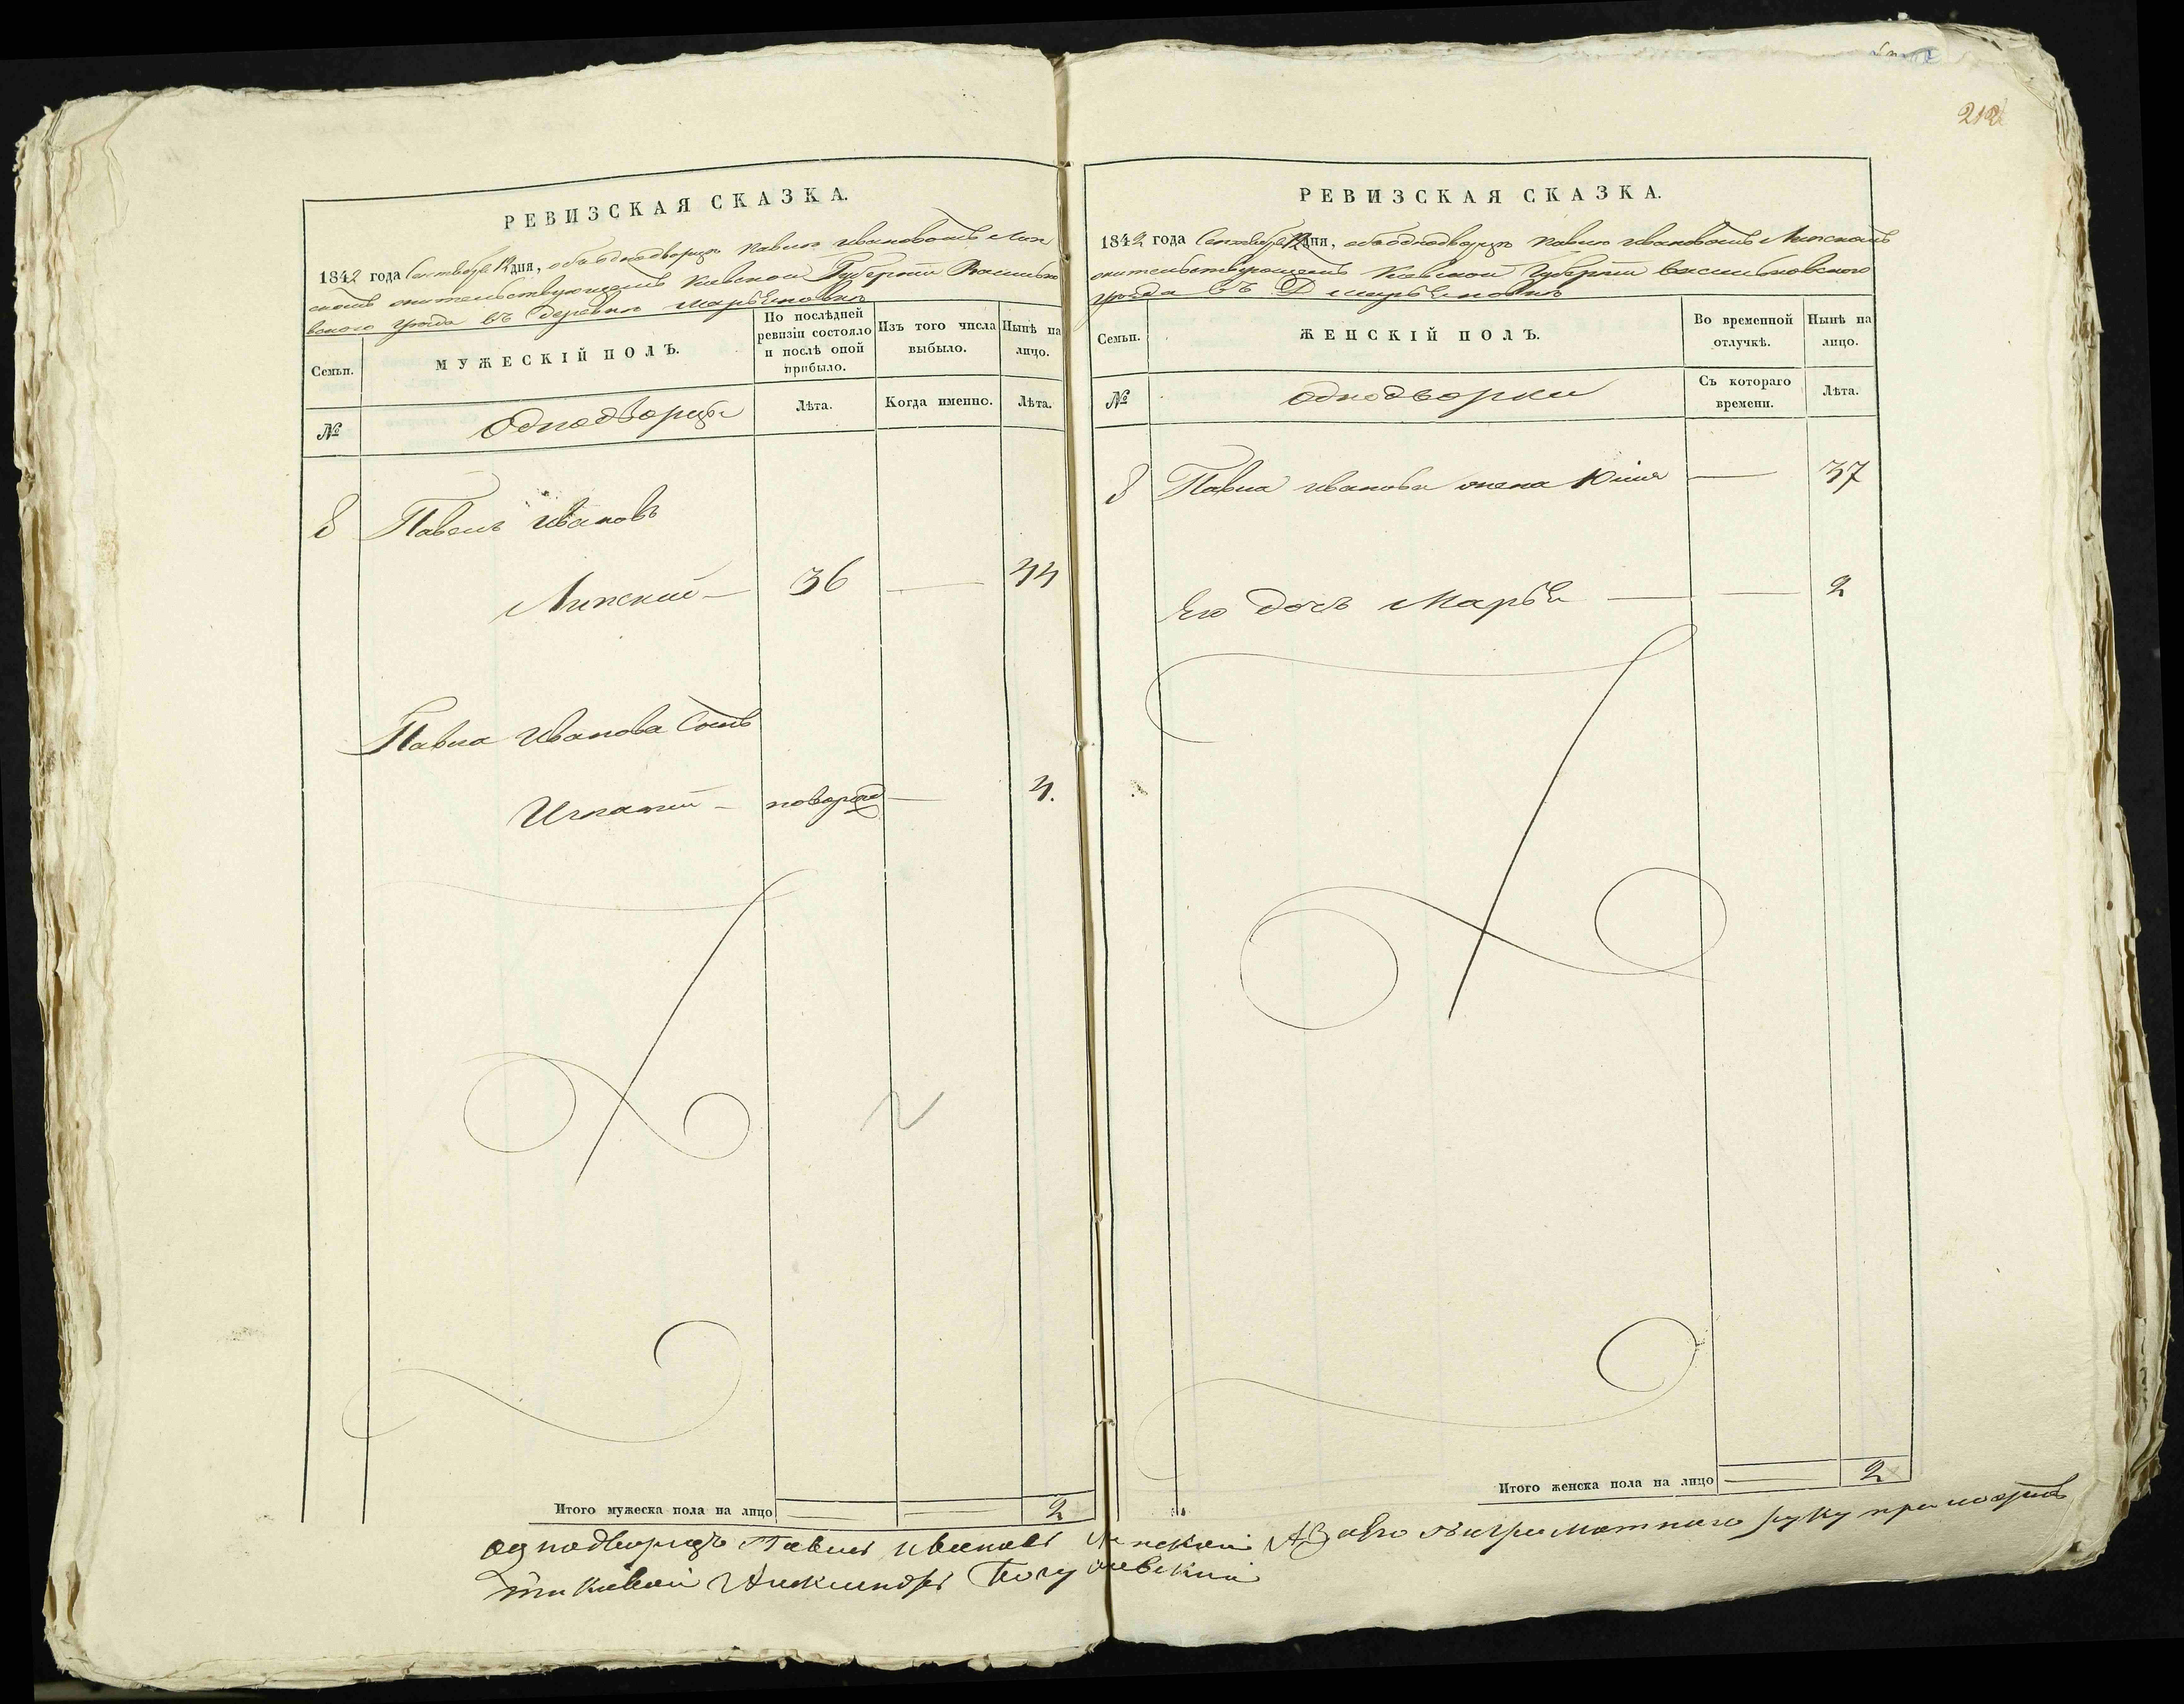 212
РЕВИЗСКАЯ СКАЗКА.
1842 года Сентября 12 дня, объ однодворце Павле Ивановомъ Лип
скомъ жительствующемъ Киевской Губернии Василько
вского уезда въ деревне Марьяновке
Семьи.
МУЖЕСКІЙ ПОЛЪ.
По послѣдней ревизіи состояло и послѣ оной прибыло.
Изъ того числа выбыло.
Нынѣ на лицо.
№
Однодворцы
Лѣта.
Когда именно.
Лѣта.
8 Павелъ Ивановъ
Липский — 36 — 44
Павла Иванова Сынъ
Игнатий — новорожд — 4.
Итого мужеска пола на лицо 2
РЕВИЗСКАЯ СКАЗКА.
1842 года Сентября 12 дня, объ однодворце Павле Ивановомъ Липскомъ
жительствующемъ Киевской Губернии Васильковского
уезда въ Д Марьяновке
Семьи.
ЖЕНСКІЙ ПОЛЪ.
Во временной отлучкѣ.
Нынѣ на лицо.
№
Однодворки
Съ котораго времени.
Лѣта.
8 Павла Иванова жена Юлия — 37
Его дочь Марья — — 2
Итого женска пола на лицо 2
однодворецъ Павелъ Ивановъ Липский а за его неграмотнаго руку приложилъ
Александръ